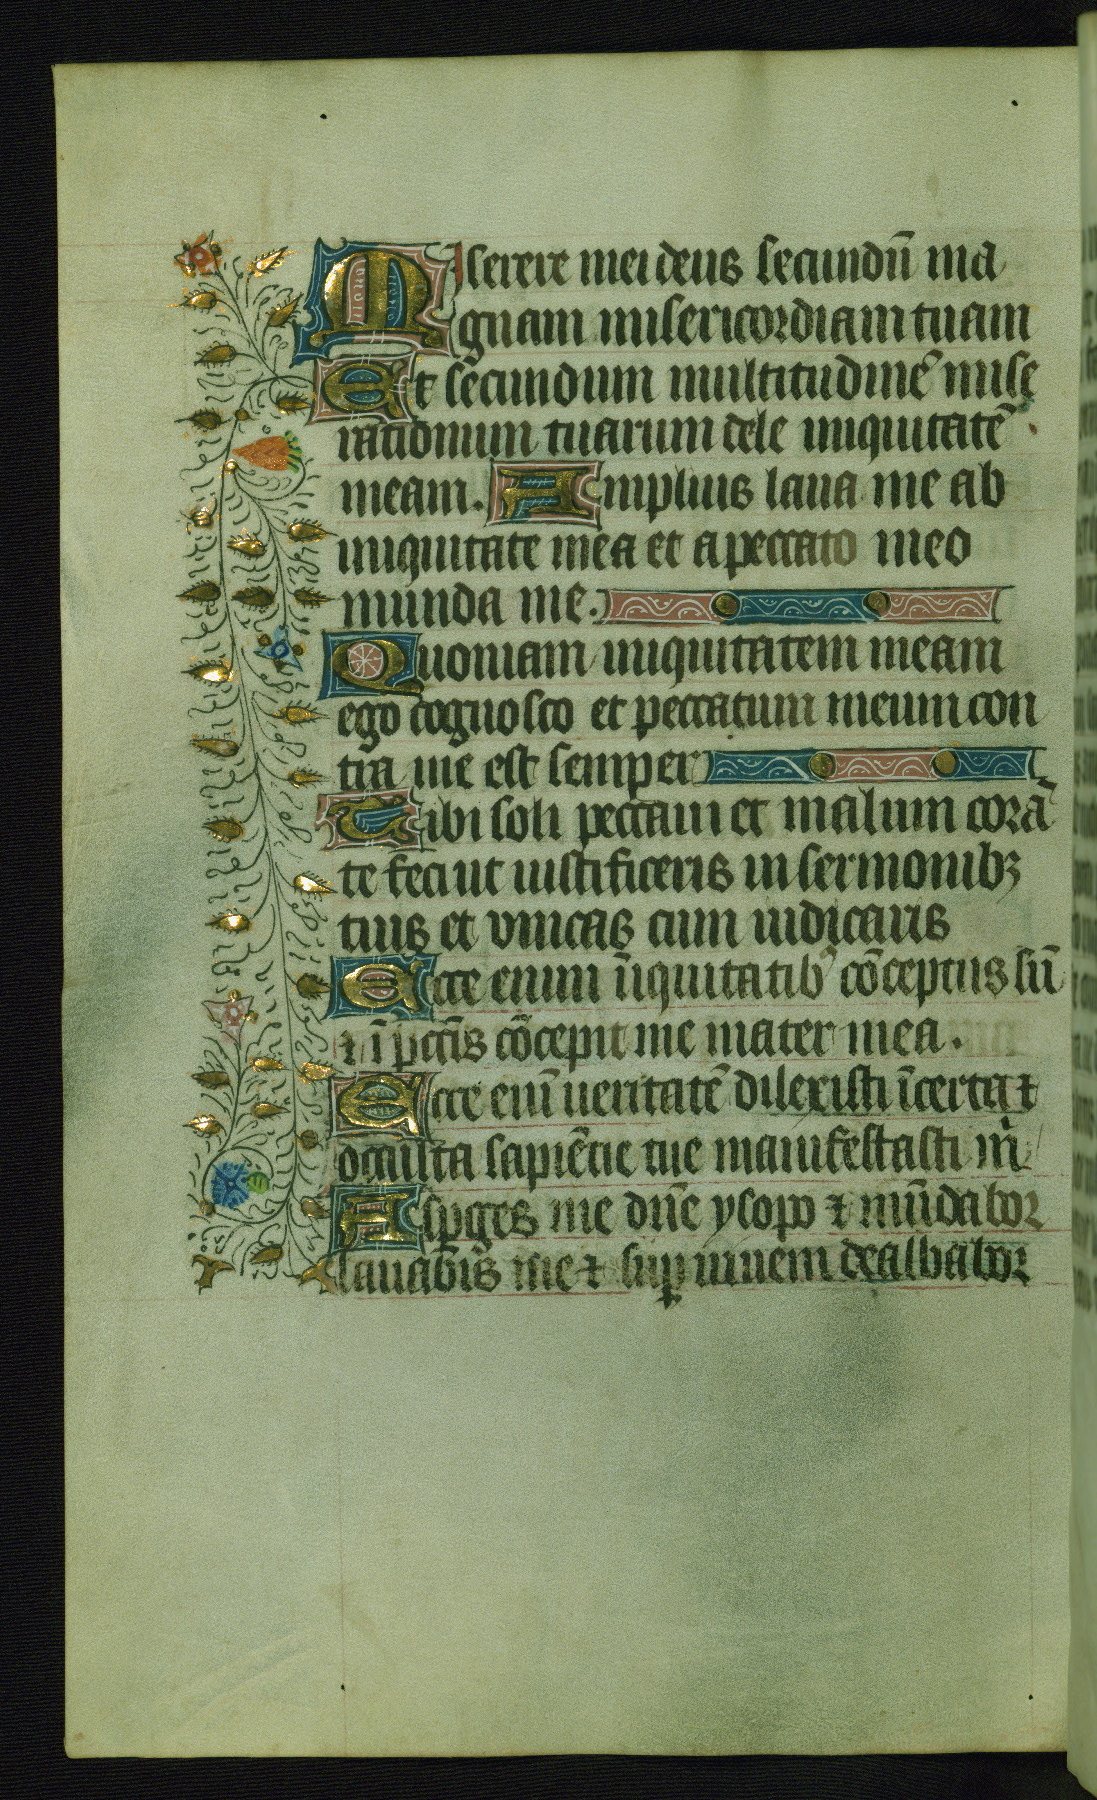 Miserere mei deus secundū ma
gnam misericordiam tuam
Et secundum multitudinē mise
rationum tuarum dele iniquitatē
meam. Amplius laua me ab
iniquitate mea et a peccato meo
munda me.
Quoniam iniquitatem meam
ego cognosco et peccatum meum con
tra me est semper
Tibi soli peccaui et malum corā
te feci ut iustificeris in sermonibꝫ
tuis et vincas cum iudicaris
Ecce enim īiquitatibꝰ cōceptus sū
⁊ ī pctīs cōcepit me mater mea.
Ecce eni᷒ ueritatē dilexisti īcerta ⁊
occulta sapiētie tue manifestasti m̄
Aspges me dn̄e ysopo ⁊ mūdabor
lauabis me ⁊ suꝑ niuem dealbabor